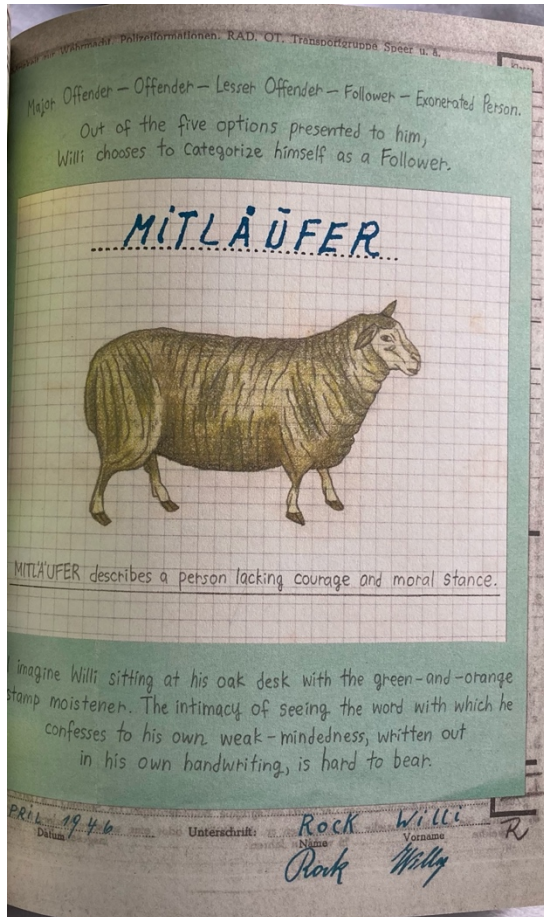 Wehrmacht, Polizeiformationen, RAD, OT, Transportgruppe Speer u. a.
Major Offender – Offender – Lesser Offender – Follower – Exonerated Person.
Out of the five options presented to him,
Willi chooses to categorize himself as a Follower.
MiTLÄUFER
MITLÄUFER describes a person lacking courage and moral stance.
I imagine Willi sitting at his oak desk with the green-and-orange
stamp moistener. The intimacy of seeing the word with which he
confesses to his own weak-mindedness, written out
in his own handwriting, is hard to bear.
PRiL 1946 Unterschrift: Rock Willi R
Datum Name Vorname
Rock Willy